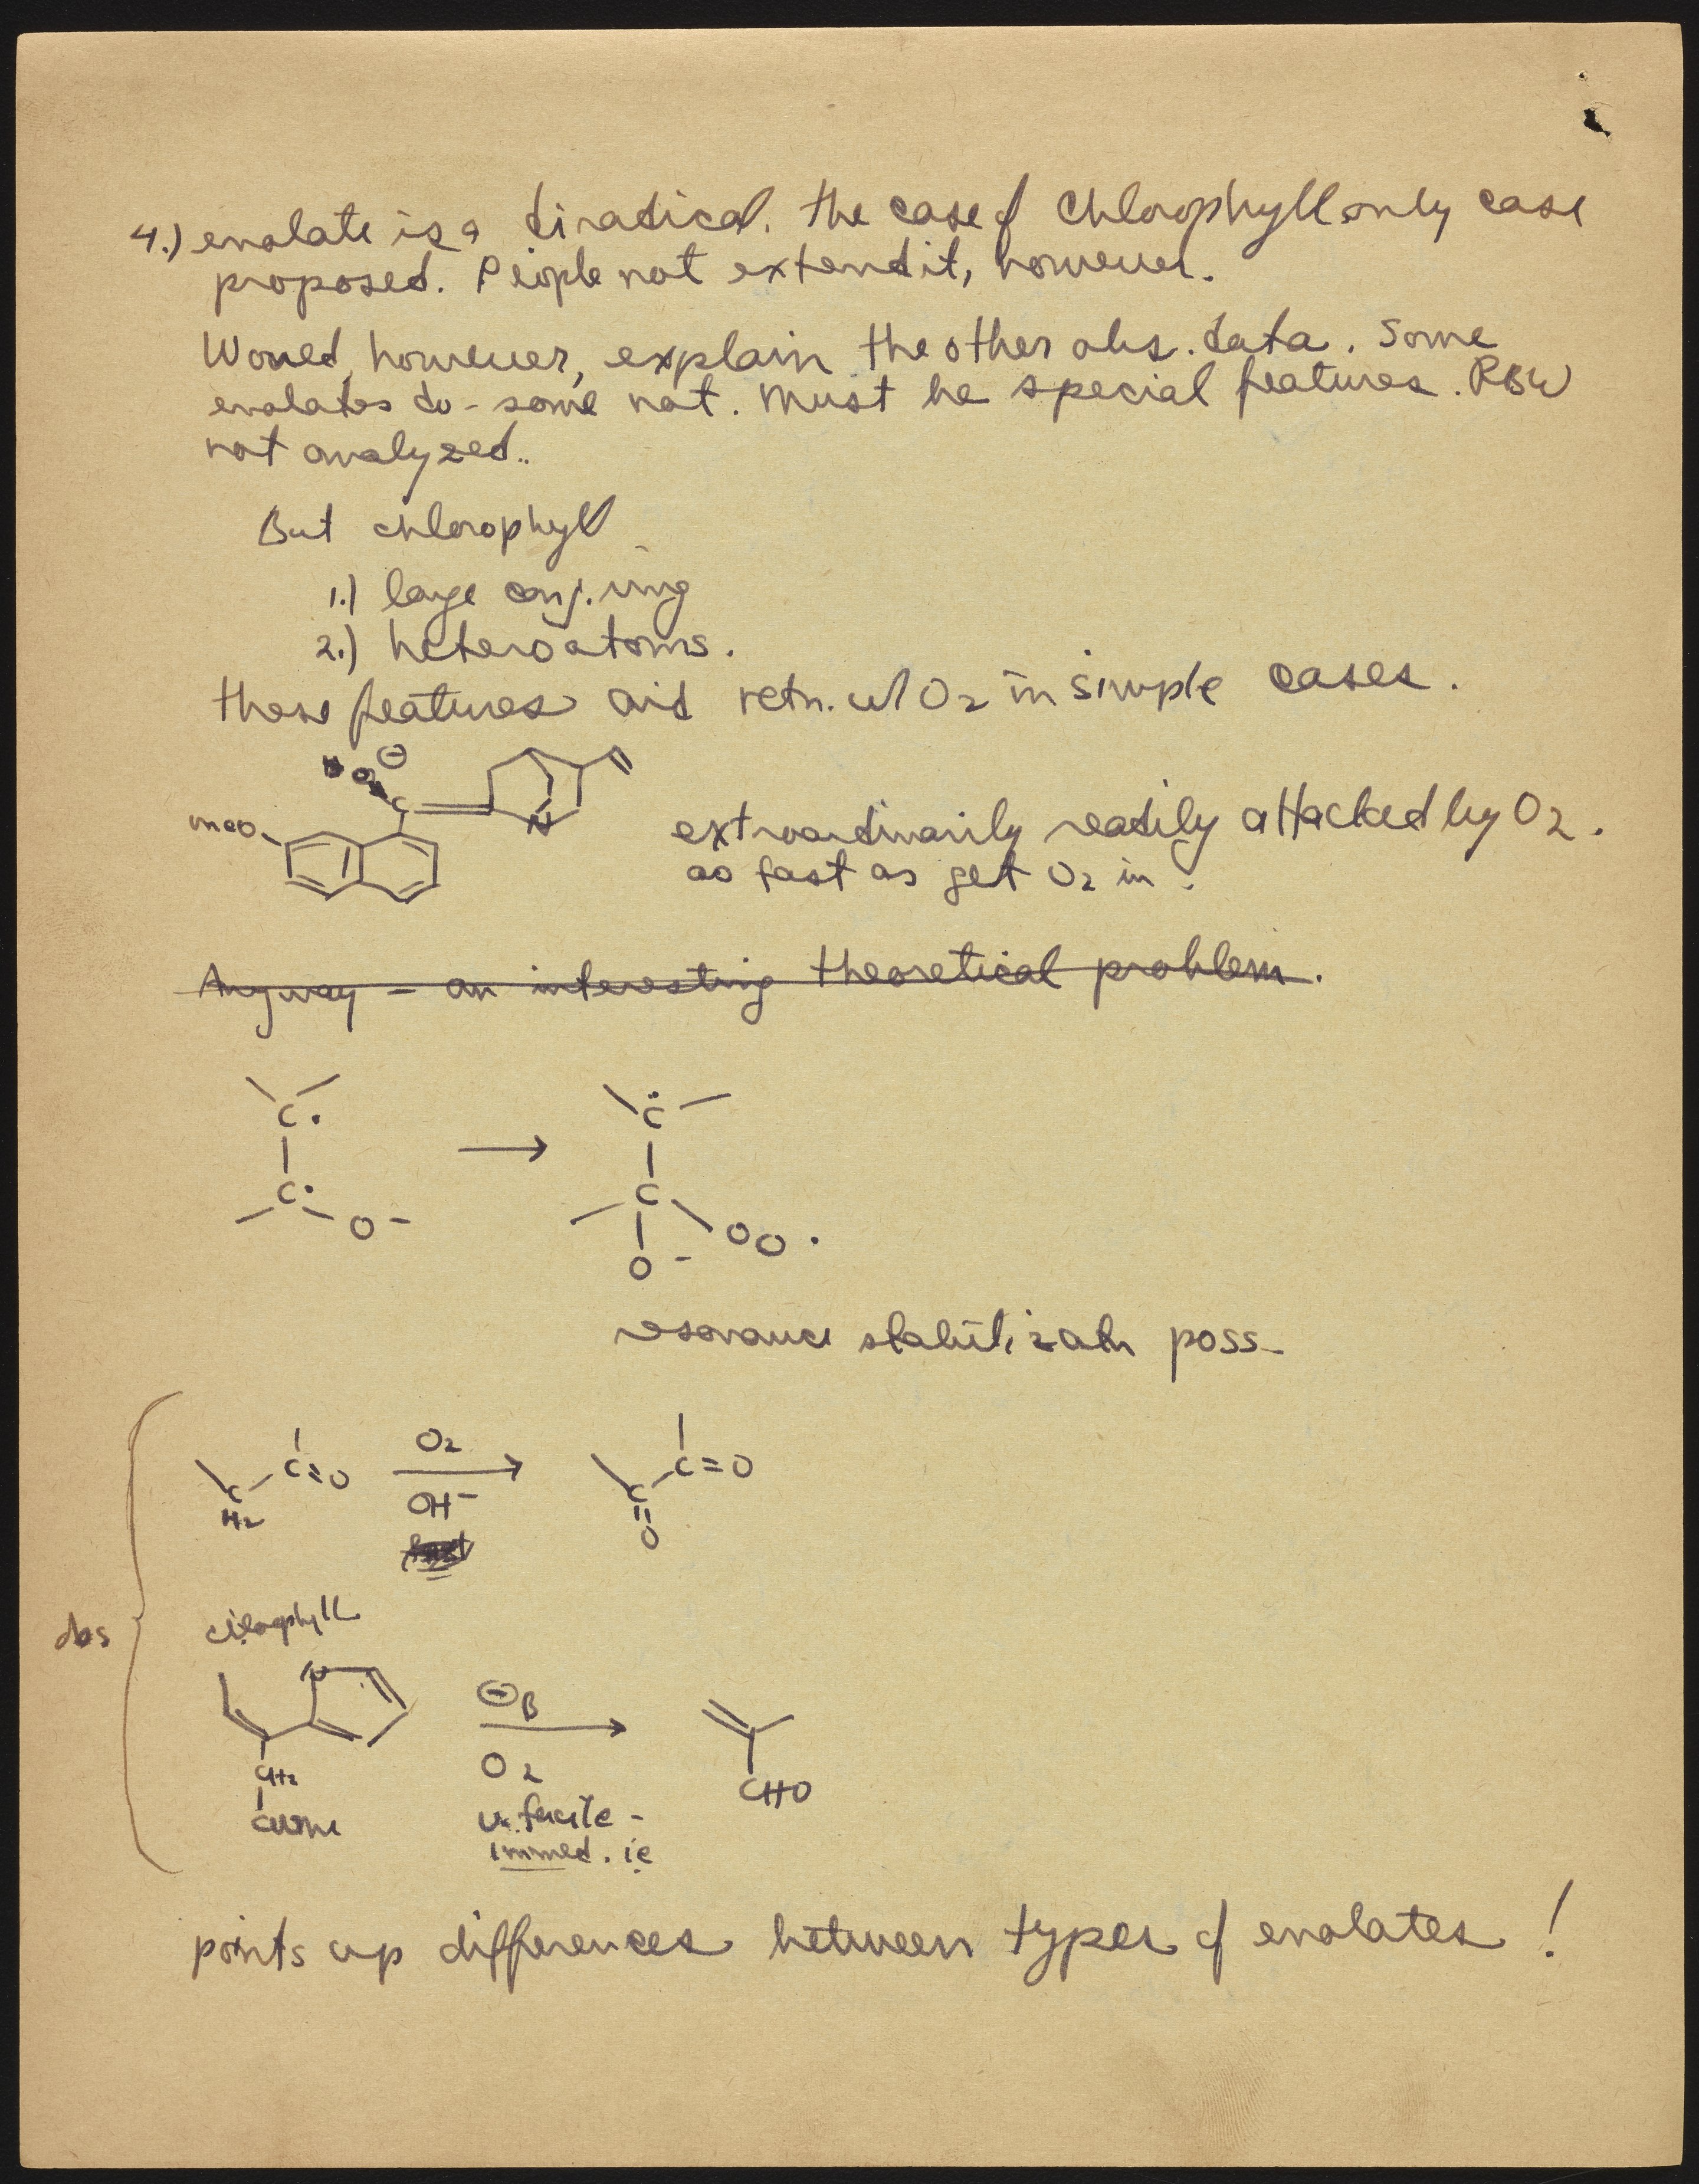 4.) enolate is a diradical. The case of chlorophyll only case
proposed. People not extend it, however.
Would, however, explain the other obs. data. Some
enolates do - some not. Must be special features. RBW
not analyzed..
But chlorophyll
1.) large conj. ring
2.) heteroatoms.
these features aid retn. w/ O2 in simple cases.
O ⊖
C
meO
N
extraordinarily readily attacked by O2.
as fast as get O2 in.
Anyway - an interesting theoretical problem.
C· → C̈
C· C
O - OO·
O -
resonance stabilizatn poss-
C=O O2 C=O
C OH- C
H2 O
fast
obs
chlorophyll
N ⊖B
CH2 O2 CHO
COOMe v. facile -
immed. ie
points up differences between types of enolates!